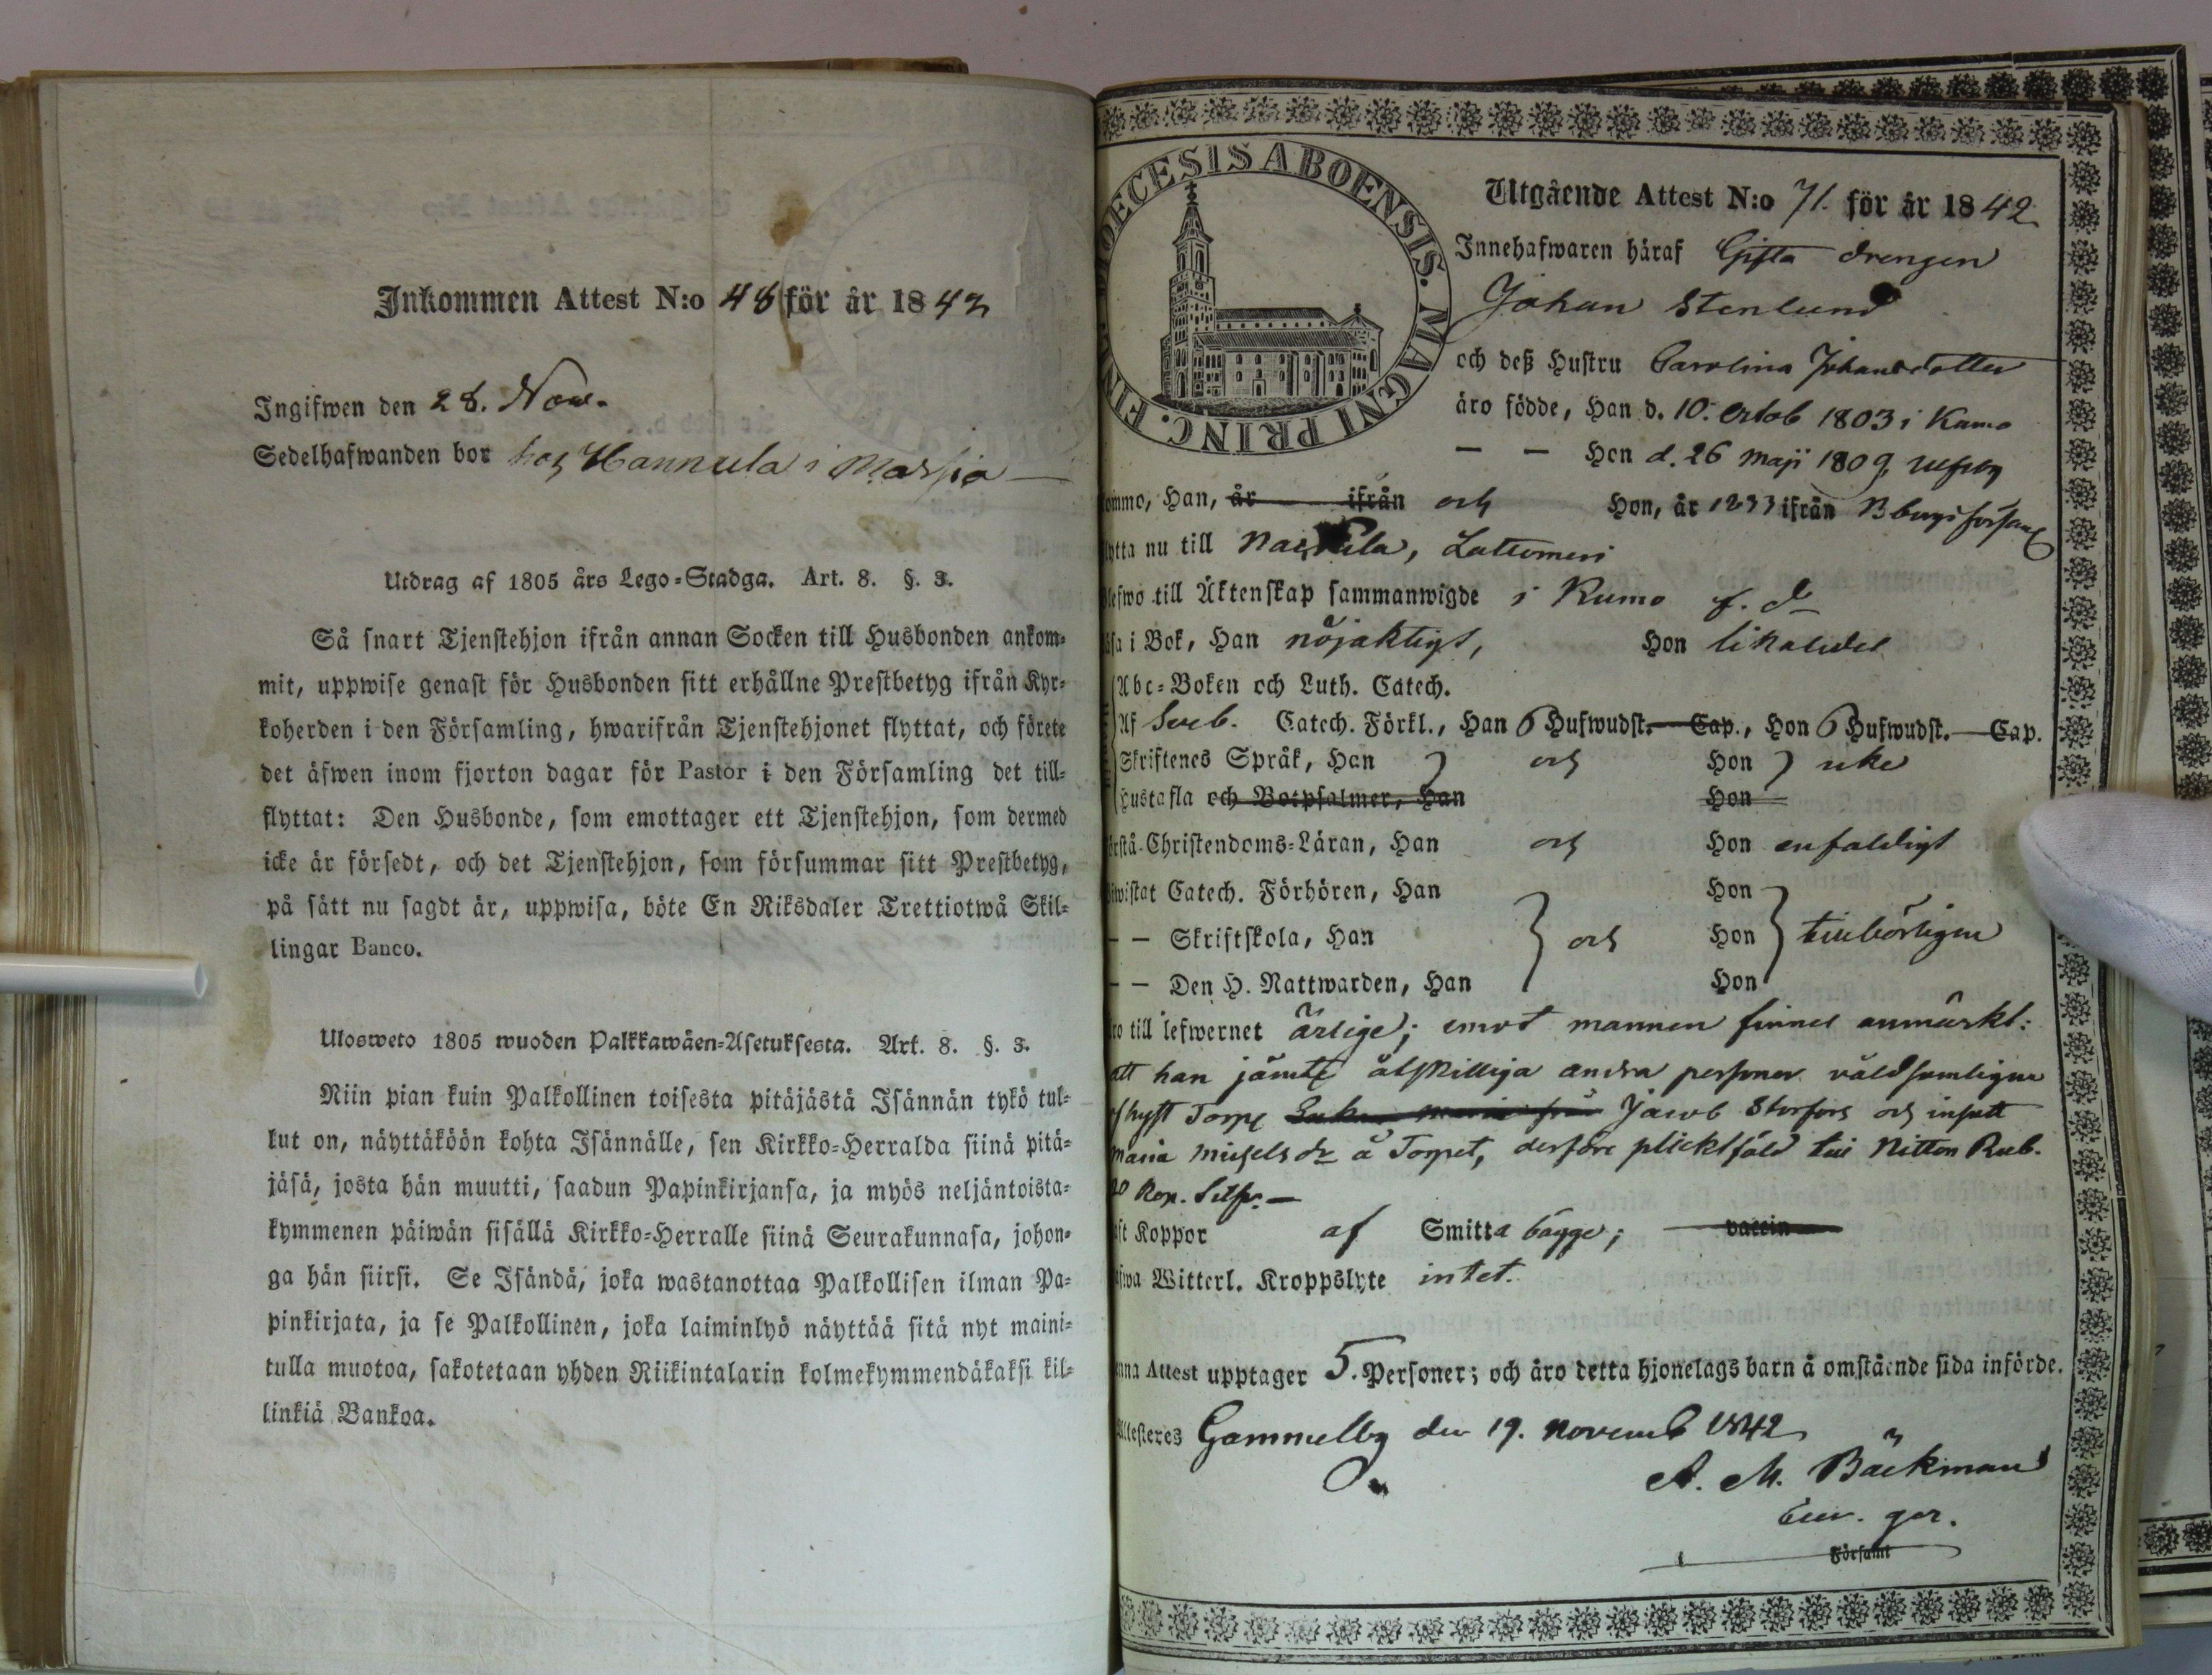 Inkommen Attest N:o 48 för år 1842
Ingifwen den 28. Now.
Sedelhafwanden bor hos Hannula i
Utdrag af 1805 års Lego-Stadga. Art. 8. §. 3.
Så snart Tjenstehjon ifrån annan Socken till Husbonden ankom-
mit, uppwise genast för Husbonden sitt erhållne Prestbetyg ifrån Kyr-
koherden i den Församling, hwarifrån Tjenstehjonet flyttat, och förete
det äfwen inom fjorton dagar för Pastor i den Församling det till-
flyttat: Den Husbonde, som emottager ett Tjenstehjon, som dermed
icke är försedt, och det Tjenstehjon, som försummar sitt Prestbetyg,
på sätt nu sagdt är, uppwisa, böte En Riksdaler Trettiotwå Skil-
lingar Banco.
Ulosweto 1805 wuoden Palkkawäen-Asetuksesta. Art. 8. §. 3.
Niin pian kuin Palkollinen toisesta pitäjästä Isännän tykö tul-
lut on, näyttäköön kohta Isännälle, sen Kirkko-Herralda siinä pitä-
jäsä, josta hän muutti, saadun Papinkirjansa, ja myös neljäntoista-
kymmenen päiwän sisällä Kirkko-Herralle siinä Seurakunnasa, johon-
ga hän siirsi. Se Isändä, joka wastanottaa Palkollisen ilman Pa-
pinkirjata, ja se Palkollinen, joka laiminlyö näyttää sitä nyt maini-
tulla muotoa, sakotetaan yhden Riikintalarin kolmekymmendäkaksi kil-
linkiä Bankoa.
DIOECESIS ABOENSIS. MAGNI PRINC. FIN
Utgående Attest N:o 71. för år 1842
Innehafwaren häraf Gifta drengen
Johan Stenlund
och deß Hustru Carolina Johansdotter
äro födde, Han d. 10. Octob 1803 i Kumo
— — Hon d. 26 Maji 1809, Ulfsby
ommo, Han, år ifrån och Hon, är 1833 ifrån Bbergs församl
lytta nu till Nakkila, Lattomeri
lefwo till Äktenskap sammanwigde i Kumo f. d
äsa i Bok, Han nöjaktigt, Hon likaledes
Abc-Boken och Luth. Catech.
Af Sveb. Catech. Förkl., Han 6 Hufwudst. Cap., Hon 6 Hufwudst. Cap.
Skriftenes Språk, Han och Hon icke
Hustafla och Botpsalmer, Han Hon
örstå Christendoms-Läran, Han och Hon enfaldigt
iwistat Catech. Förhören, Han Hon
— — Skriftskola, Han och Hon tillbörligen
— — Den H. Nattwarden, Han Hon
ro till lefwernet ärlige; emot mannen finnes anmärkt:
att han jämte åtskilliga andra personer våldsamligen
Torp. Jacob Storfors och insatt
Maria Michelsdr å Torpet, derföre plicktfäld till Nitton Rub.
Kop. Silfr.
ft Koppor af Smitta bägge; vaccin
afwa Witterl. Kroppslyte intet.
nna Attest upptager 5. Personer; och äro detta hjonelags barn å omstående sida införde.
Attesteres Gammelby den 19. Novemb 1842
A. M. Bäckman
Församl